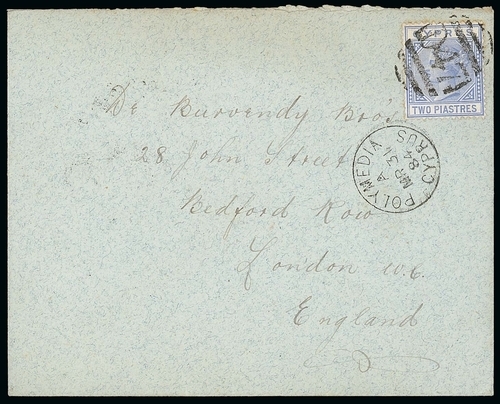 CYPRUS
TWO PIASTRES
POLYMEDIA
A
MR 31
84
CYPRUS
De Burvendy Bro's
28 John Street
Bedford Row
London W.C.
England